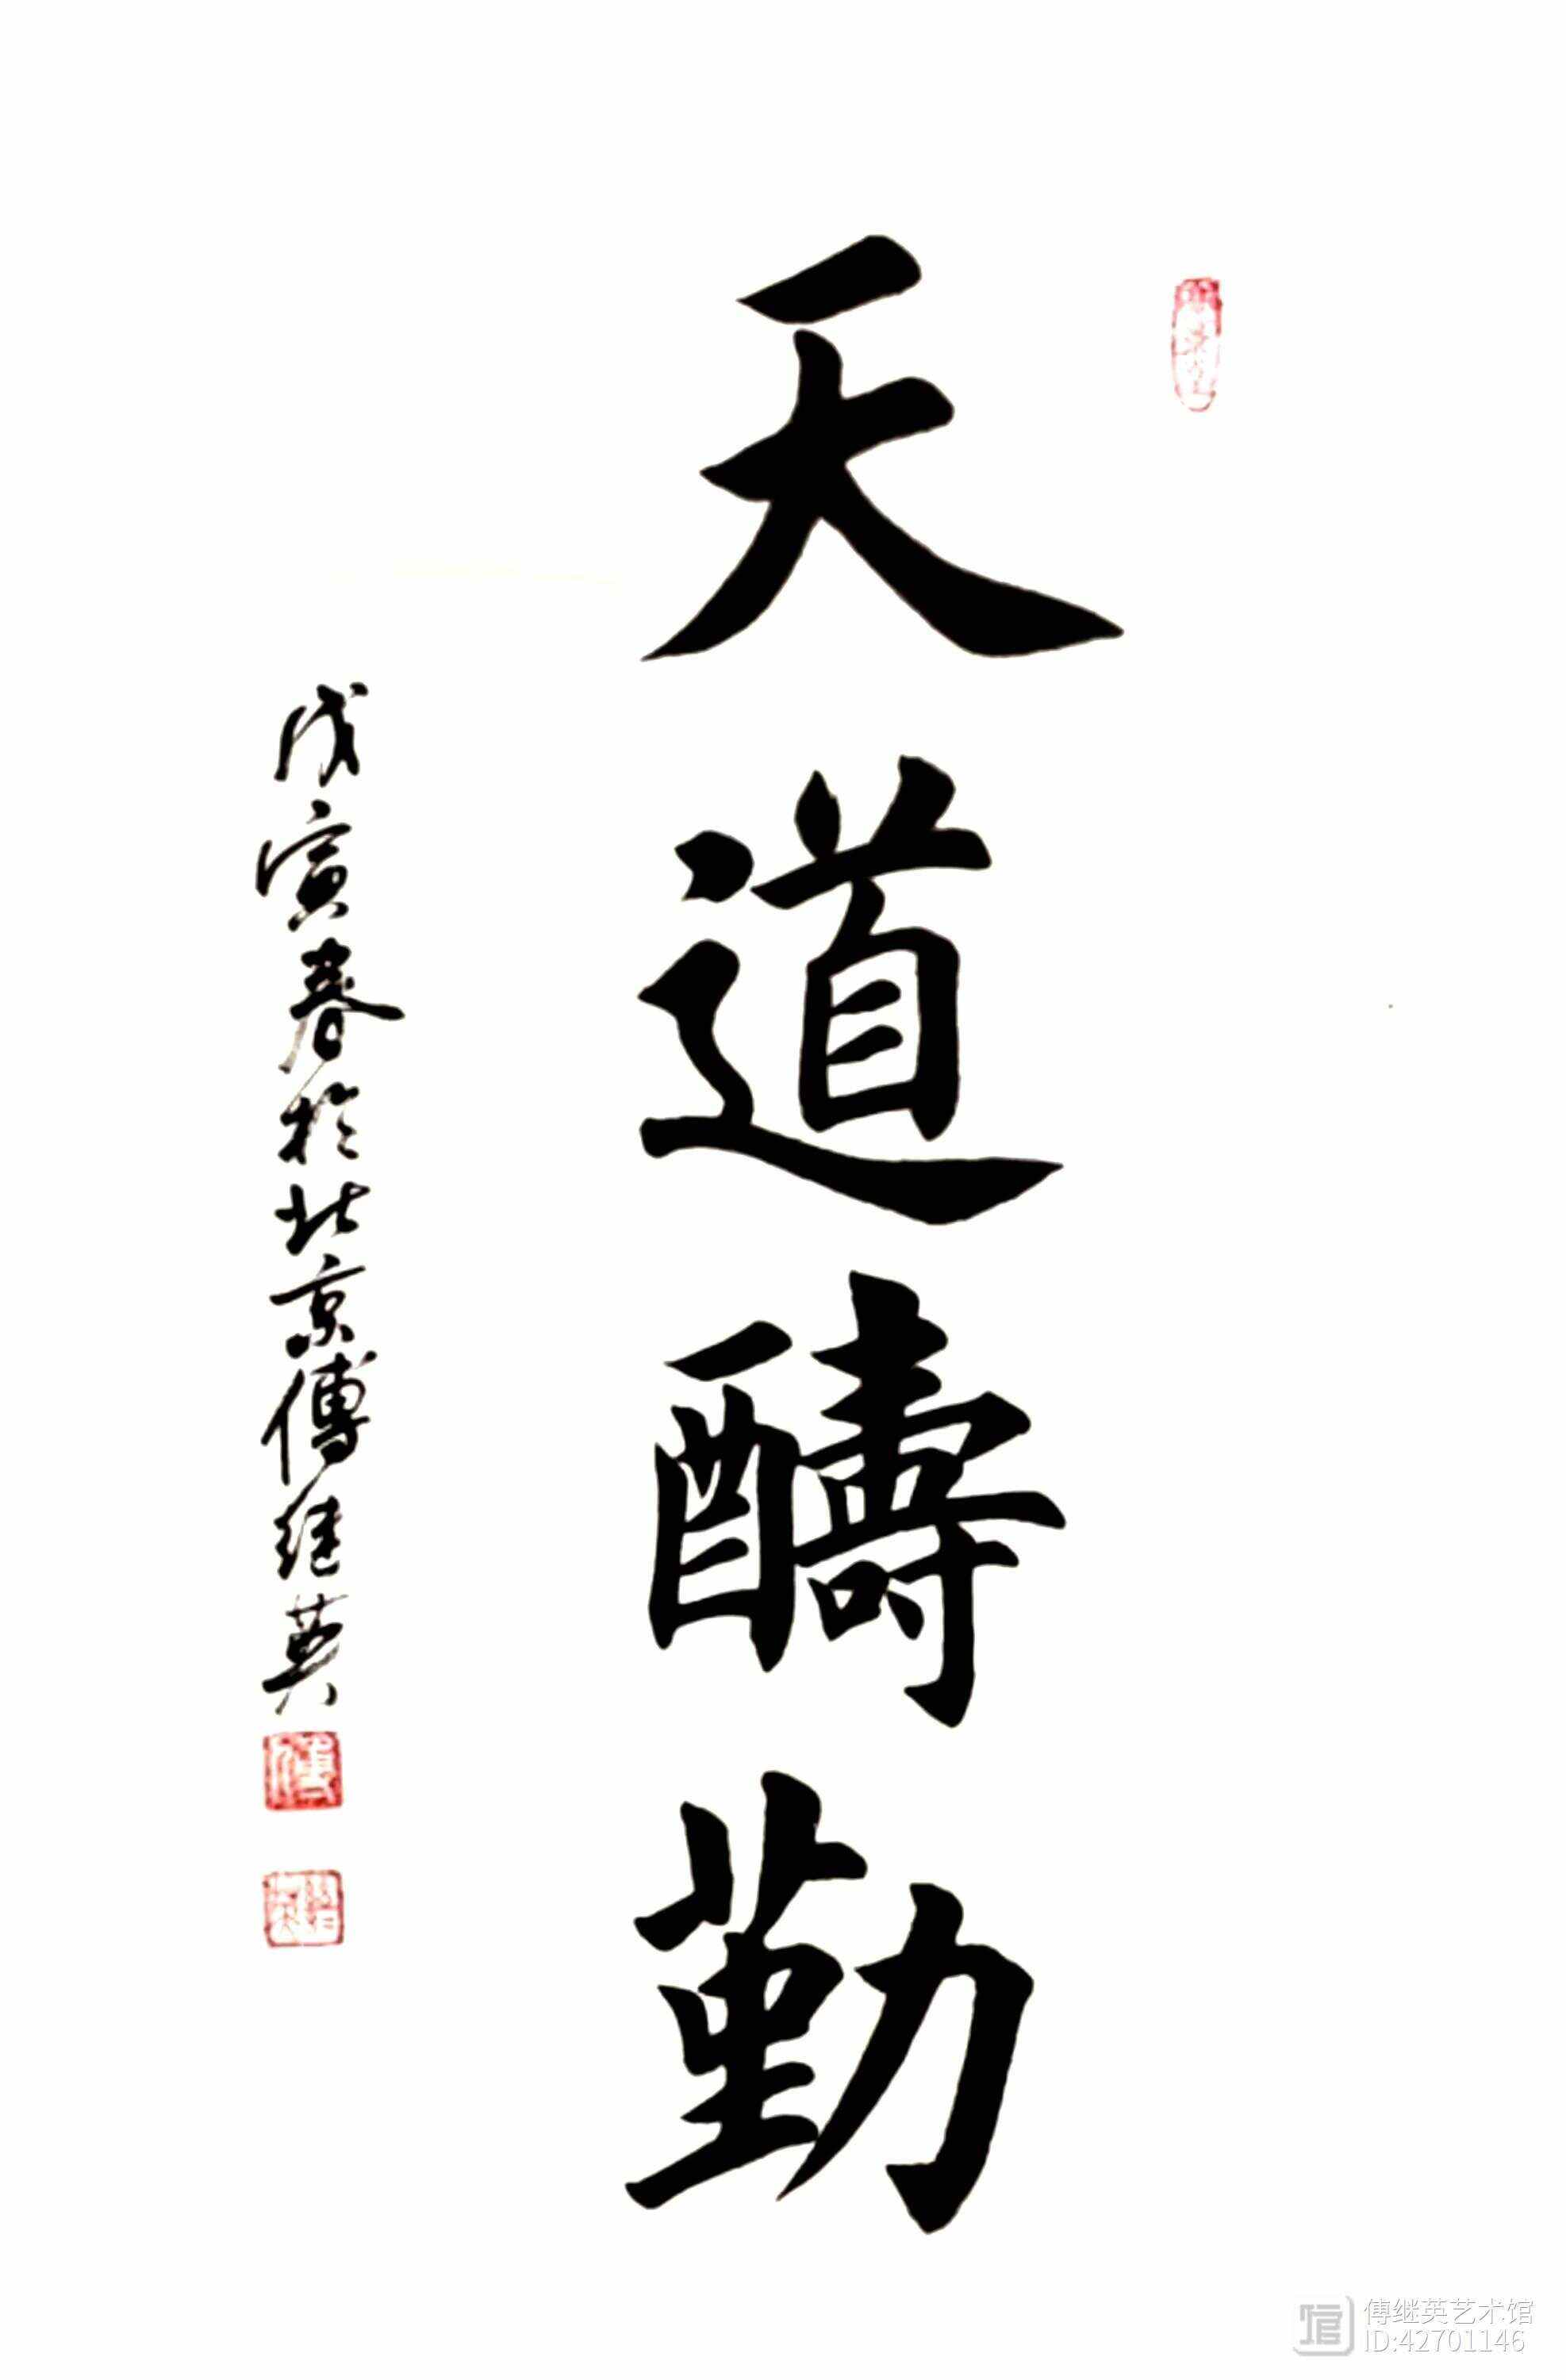 天道醻勤
戊寅春於北京傅继英
傅
傅继英艺术馆
ID:42701146